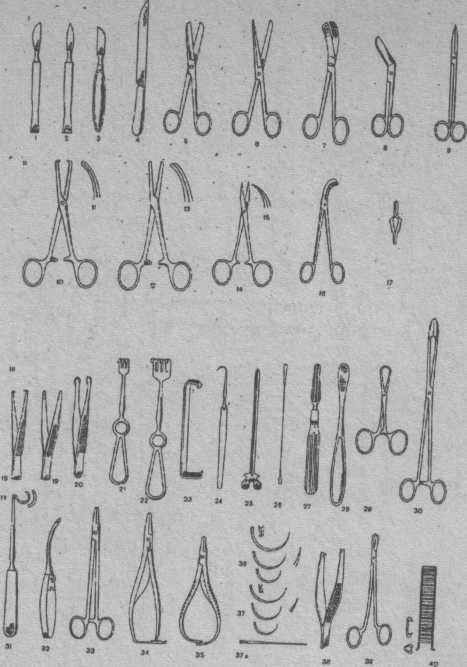 1 2 3 4 5 6 7 8 9
10 11 12 13 14 15 16 17
18 19 20 21 22 23 24 25 26 27 28 29 30
31 32 33 34 35 36 37 37a 38 39 40